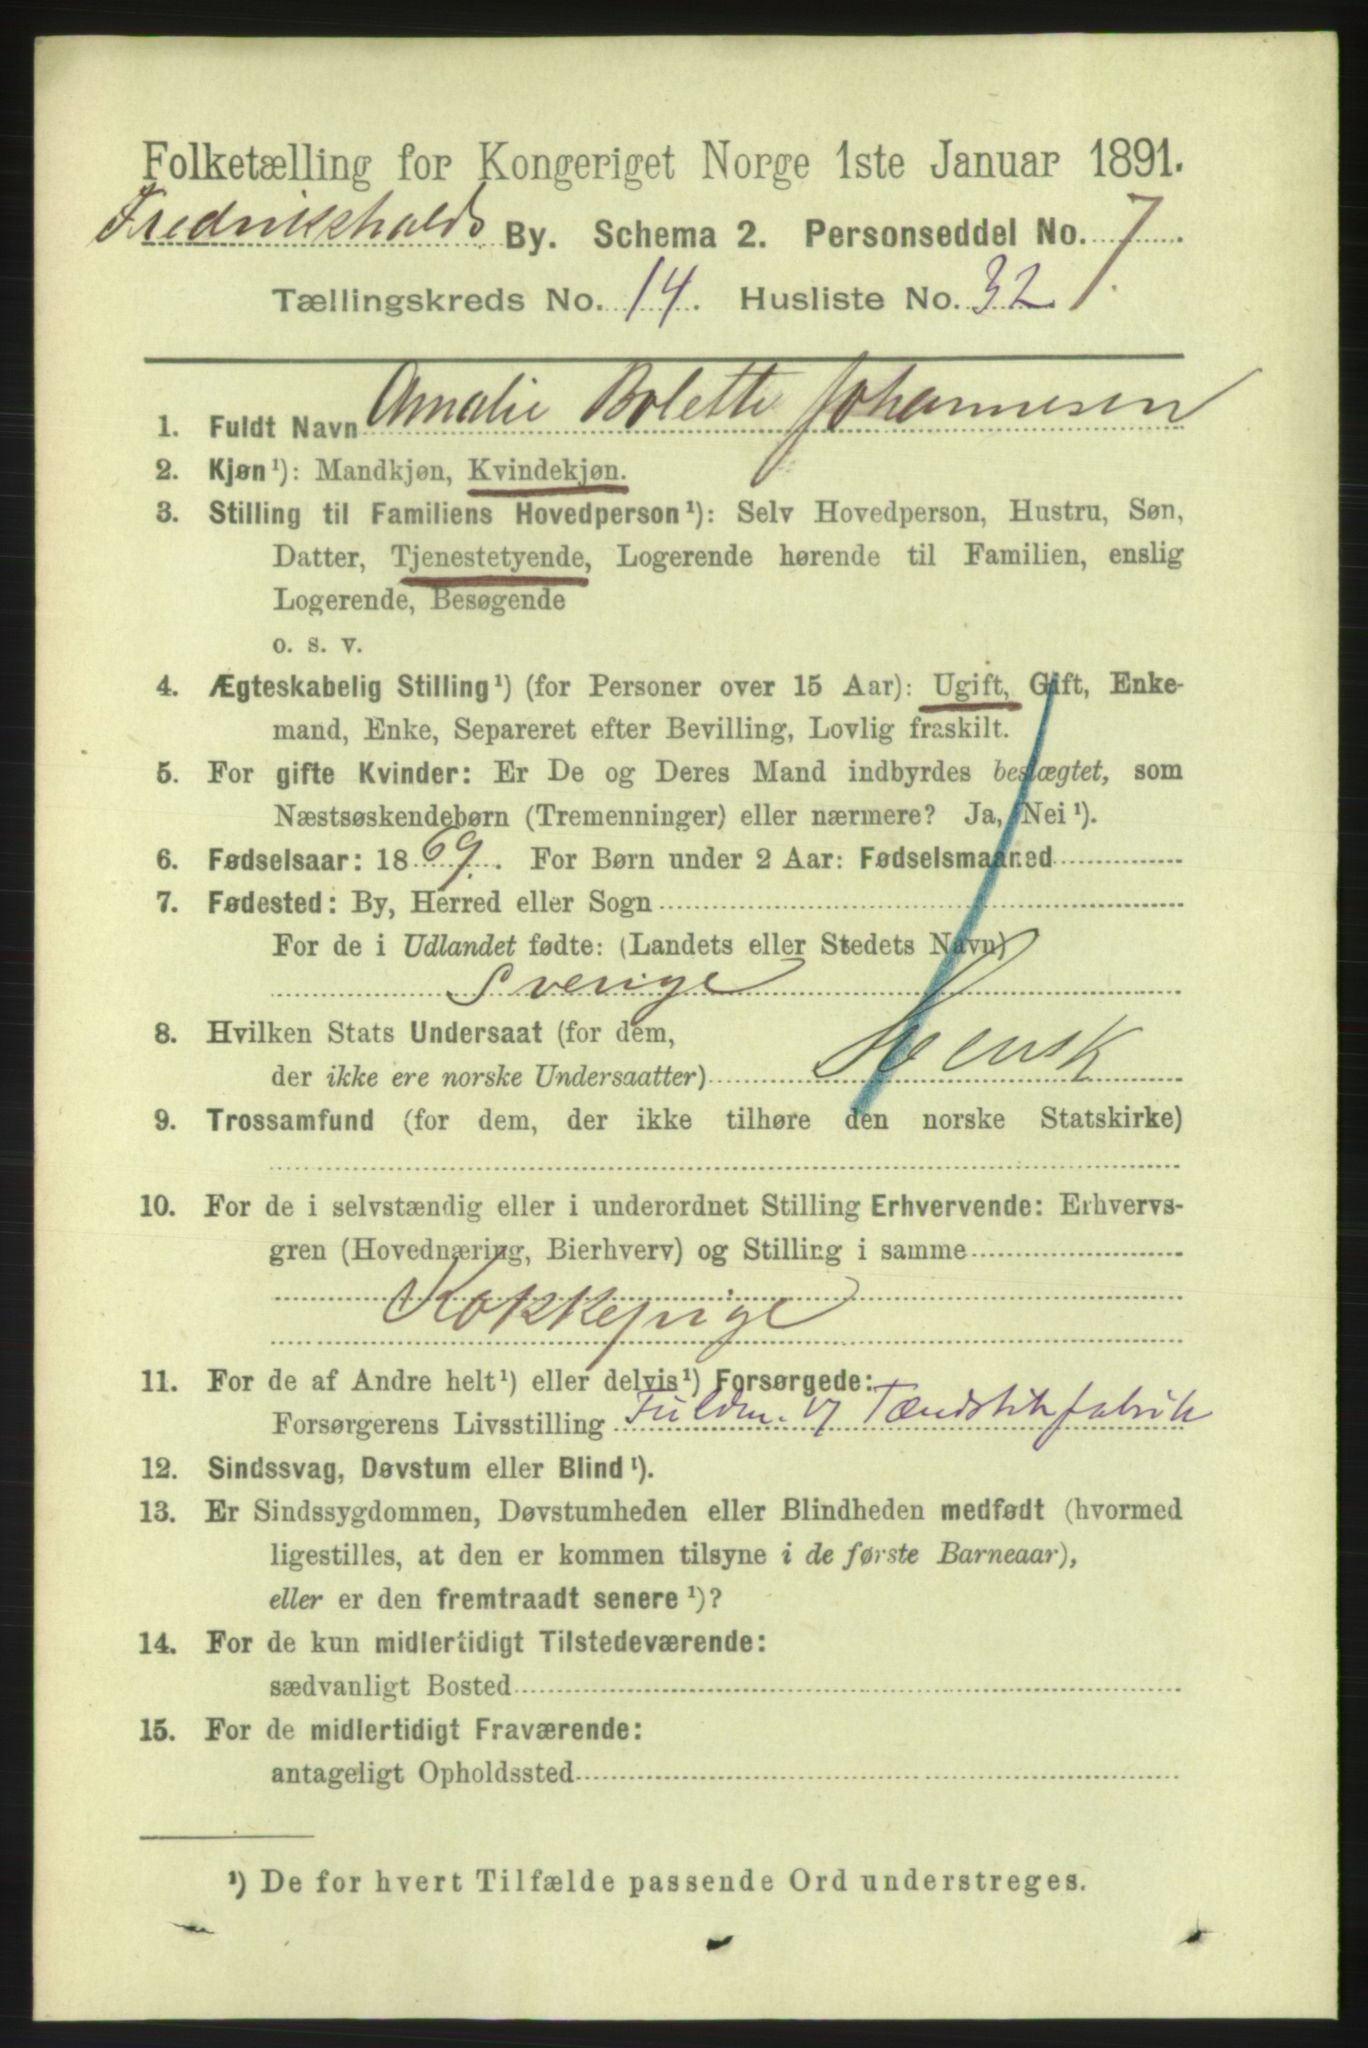 Folketælling for Kongeriget Norge 1ste Januar 1891.
Fredrikshalds By. Schema 2. Personseddel No. 7
Tællingskreds No. 14. Husliste No. 32.
1. Fuldt Navn Amalie Bolette Johannesen
2. Kjøn¹): Mandkjøn, Kvindekjøn.
3. Stilling til Familiens Hovedperson¹): Selv Hovedperson, Hustru, Søn,
Datter, Tjenestetyende, Logerende hørende til Familien, enslig
Logerende, Besøgende
o. s. v.
4. Ægteskabelig Stilling¹) (for Personer over 15 Aar): Ugift, Gift, Enke-
mand, Enke, Separeret efter Bevilling, Lovlig fraskilt.
5. For gifte Kvinder: Er De og Deres Mand indbyrdes beslægtet, som
Næstsøskendebørn (Tremenninger) eller nærmere? Ja, Nei¹).
6. Fødselsaar: 1869. For Børn under 2 Aar: Fødselsmaaned
7. Fødested: By, Herred eller Sogn
For de i Udlandet fødte: (Landets eller Stedets Navn)
Sverige
8. Hvilken Stats Undersaat (for dem,
der ikke ere norske Undersaatter) Svensk
9. Trossamfund (for dem, der ikke tilhøre den norske Statskirke)
10. For de i selvstændig eller i underordnet Stilling Erhvervende: Erhvervs-
gren (Hovednæring, Bierhverv) og Stilling i samme
Kokkepige
11. For de af Andre helt¹) eller delvis¹) Forsørgede:
Forsørgerens Livsstilling Fuldm. v Tændstikfabrik
12. Sindssvag, Døvstum eller Blind¹).
13. Er Sindssygdommen, Døvstumheden eller Blindheden medfødt (hvormed
ligestilles, at den er kommen tilsyne i de første Barneaar),
eller er den fremtraadt senere¹)?
14. For de kun midlertidigt Tilstedeværende:
sædvanligt Bosted
15. For de midlertidigt Fraværende:
antageligt Opholdssted
¹) De for hvert Tilfælde passende Ord understreges.